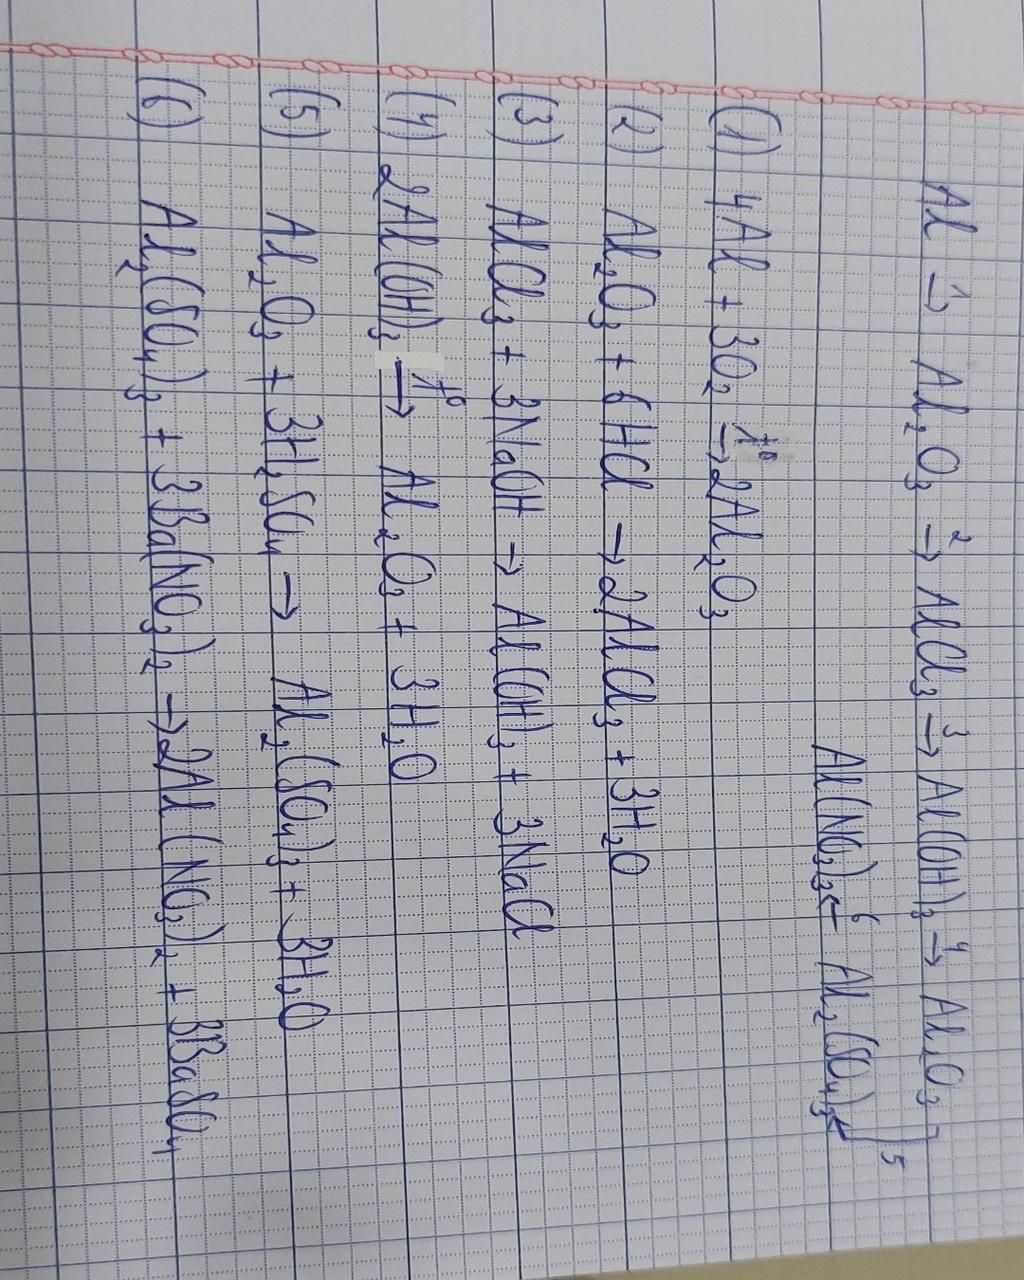 Al →¹ Al₂O₃ →² AlCl₃ →³ Al(OH)₃ →⁴ Al₂O₃
Al(NO₃)₃ ←⁶ Al₂(SO₄)₃ ← 5
(1) 4Al + 3O₂ →t° 2Al₂O₃
(2) Al₂O₃ + 6HCl → 2AlCl₃ + 3H₂O
(3) AlCl₃ + 3NaOH → Al(OH)₃ + 3NaCl
(4) 2Al(OH)₃ →t° Al₂O₃ + 3H₂O
(5) Al₂O₃ + 3H₂SO₄ → Al₂(SO₄)₃ + 3H₂O
(6) Al₂(SO₄)₃ + 3Ba(NO₃)₂ → 2Al(NO₃)₂ + 3BaSO₄